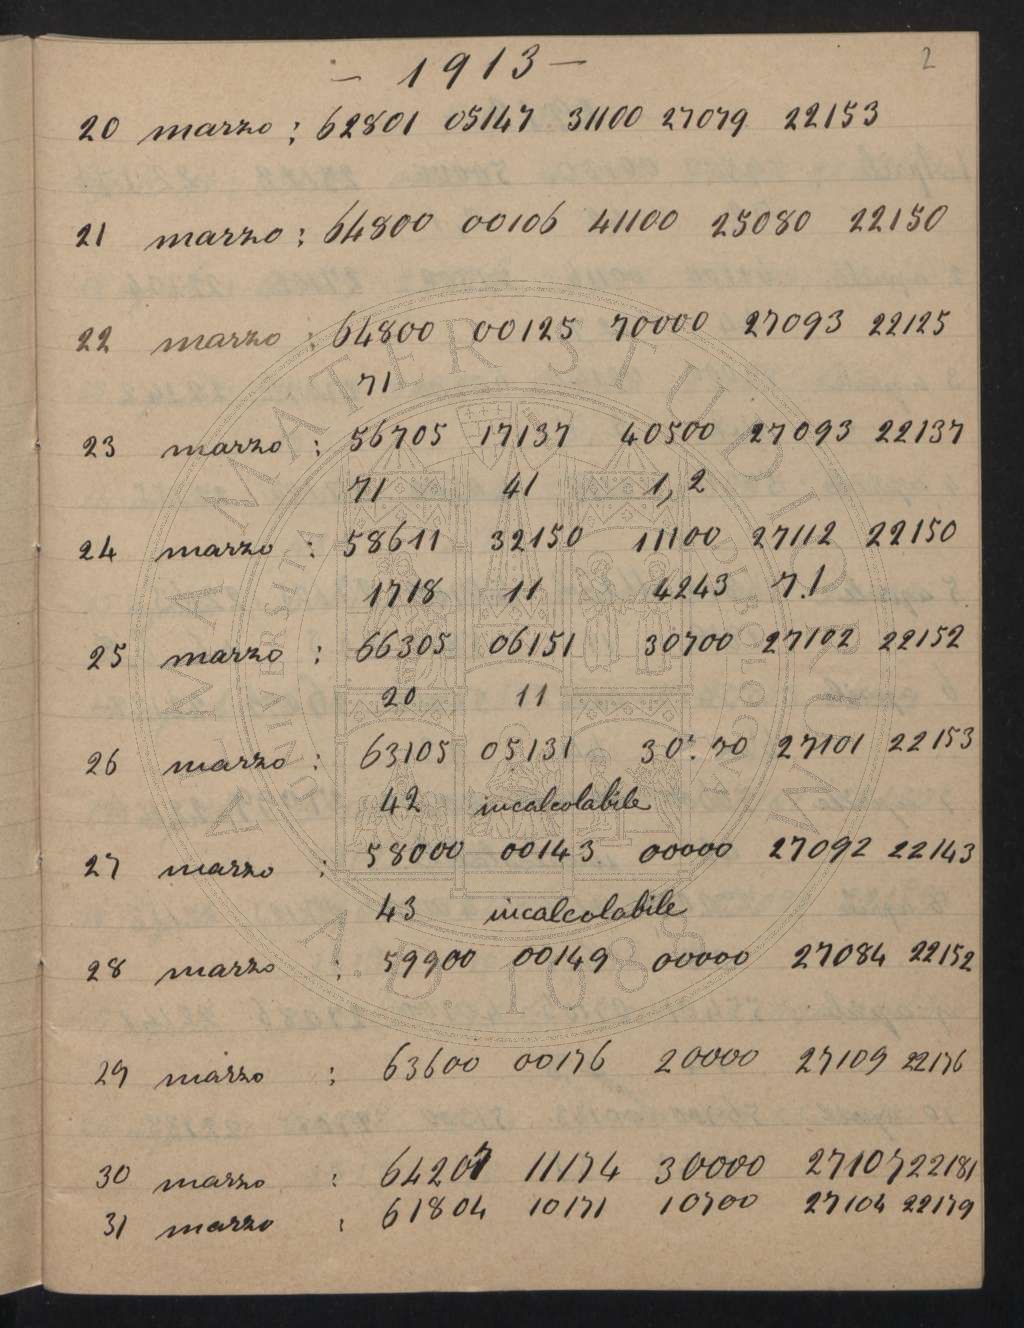 - 1913 -
2
20 marzo : 62801 05147 31100 27079 22153
21 marzo : 64800 00106 41100 25080 22150
22 marzo : 64800 00125 70000 27093 22125
71
23 marzo : 56705 17137 40500 27093 22137
71 41 1,2
24 marzo : 58611 32150 11100 27112 22150
1718 11 4243 7.1
25 marzo : 66305 06151 30700 27102 22152
20 11
26 marzo : 63105 05131 27101 22153
42 incalcolabile
27 marzo : 58000 00143 00000 27092 22143
43 incalcolabile
28 marzo : 59900 00149 00000 27084 22152
29 marzo : 63600 00176 20000 27109 22176
30 marzo : 11174 30000 27107 22181
31 marzo : 61804 10171 10700 27104 22179
ALMA MATER STUDIORUM
A.D. 1088